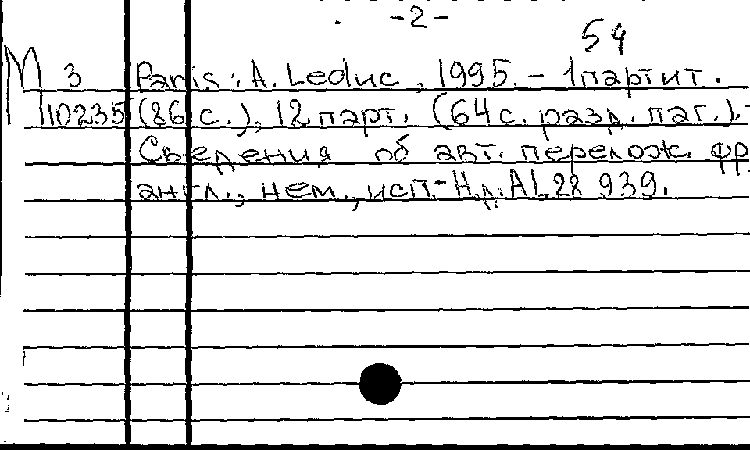 -2-
54
М 3 Paris : A. Leduc, 1995. - 1 партит.
10235 (86 с.), 12 парт. (64 с. разд. паг.).
Сведения об авт. перелож. фр.
англ., нем., исп. - Н.д. AL 28 939.